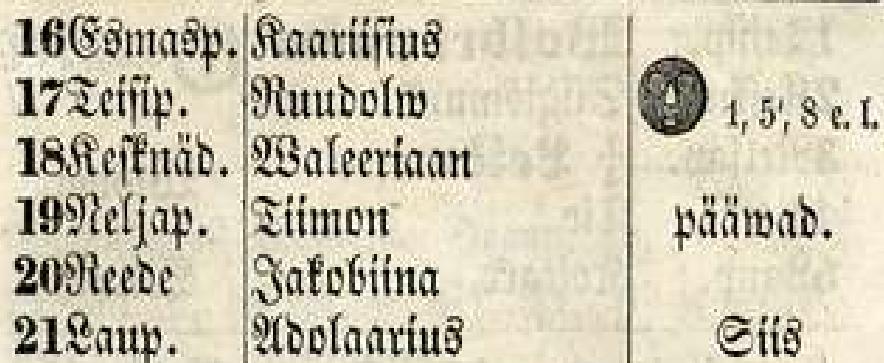 16 Esmasp. Kaariisius
17 Teisip. Ruudolw 1, 5', 8 e. l.
18 Kesknäd. Waleeriaan
19 Neljap. Tiimon pääwad.
20 Reede Jakobiina
21 Laup. Adolaarius Siis